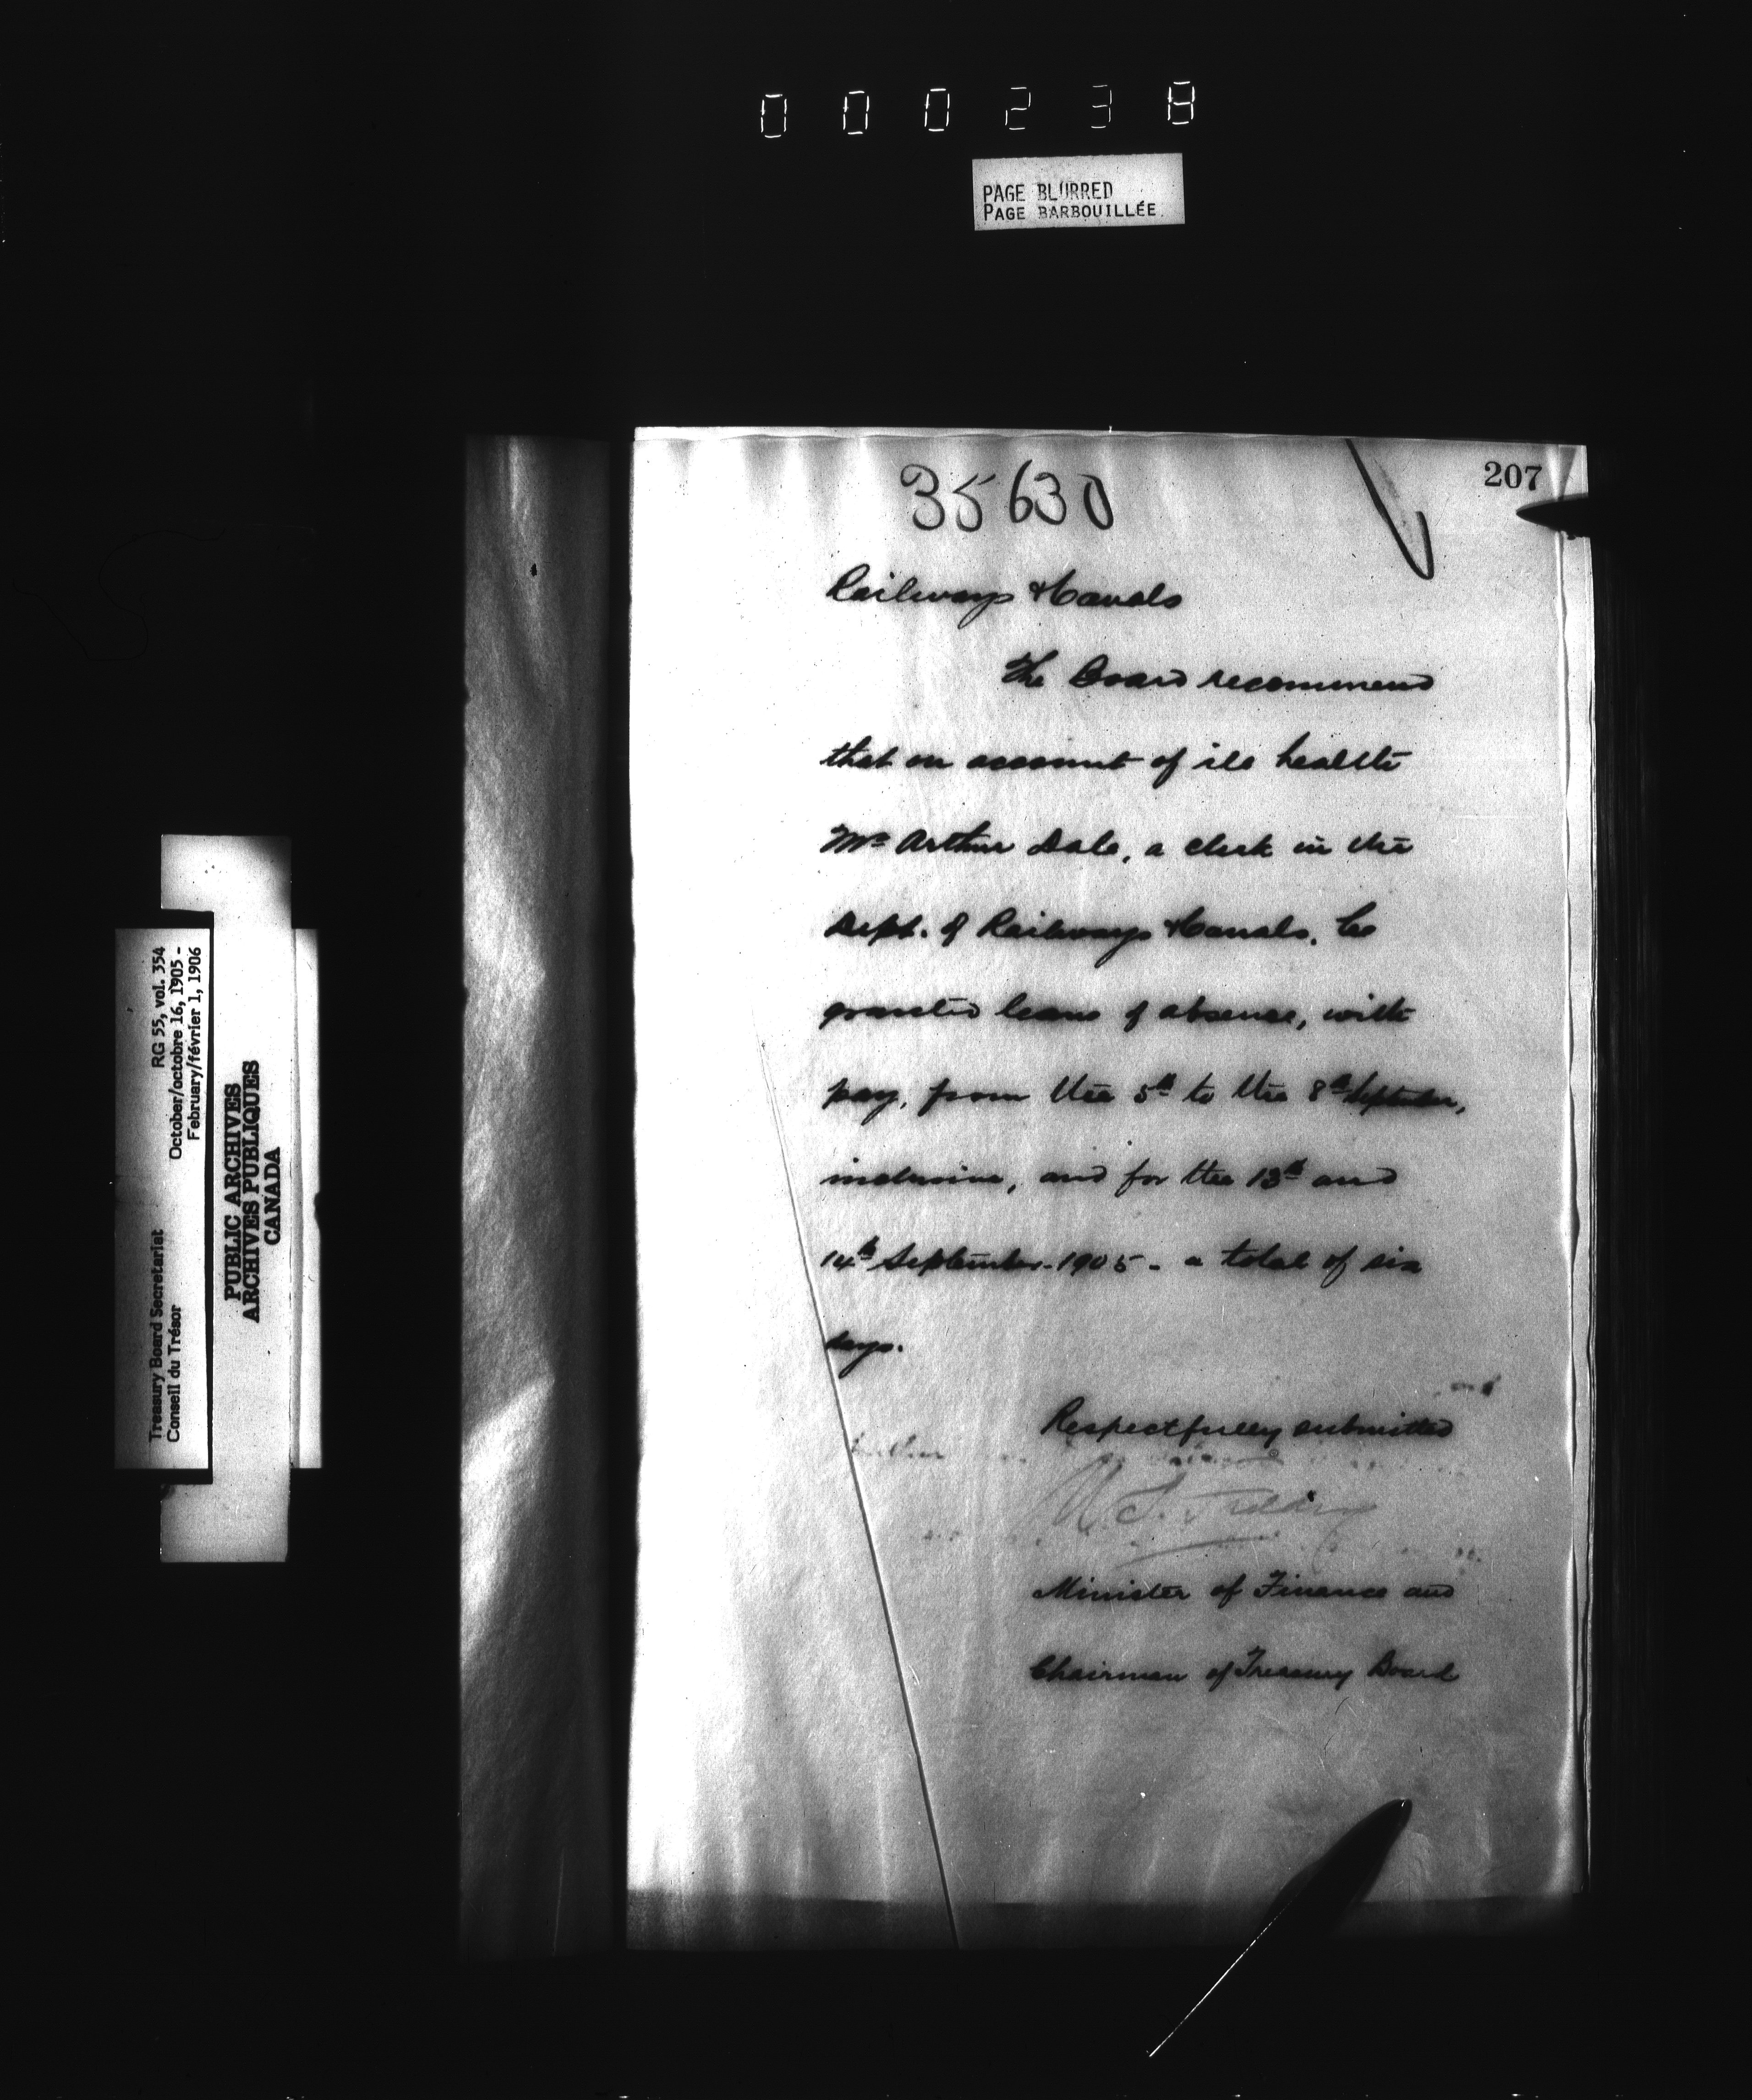 000238
PAGE BLURRED
PAGE BARBOUILLÉE
207
35630
Railways & Canals
The Board recommend
that on account of ill health
Mr Arthur Dale, a clerk in the
Dept. of Railways & Canals, be
granted leave of absence, with
pay, from the 5th to the 8th September,
inclusive, and for the 13th and
14th September 1905 - a total of six
days.
Respectfully submitted
W. S. Fielding
Minister of Finance and
Chairman of Treasury Board
Treasury Board Secretariat RG 55, vol. 354
Conseil du Trésor October/octobre 16, 1905 -
February/février 1, 1906
PUBLIC ARCHIVES
ARCHIVES PUBLIQUES
CANADA